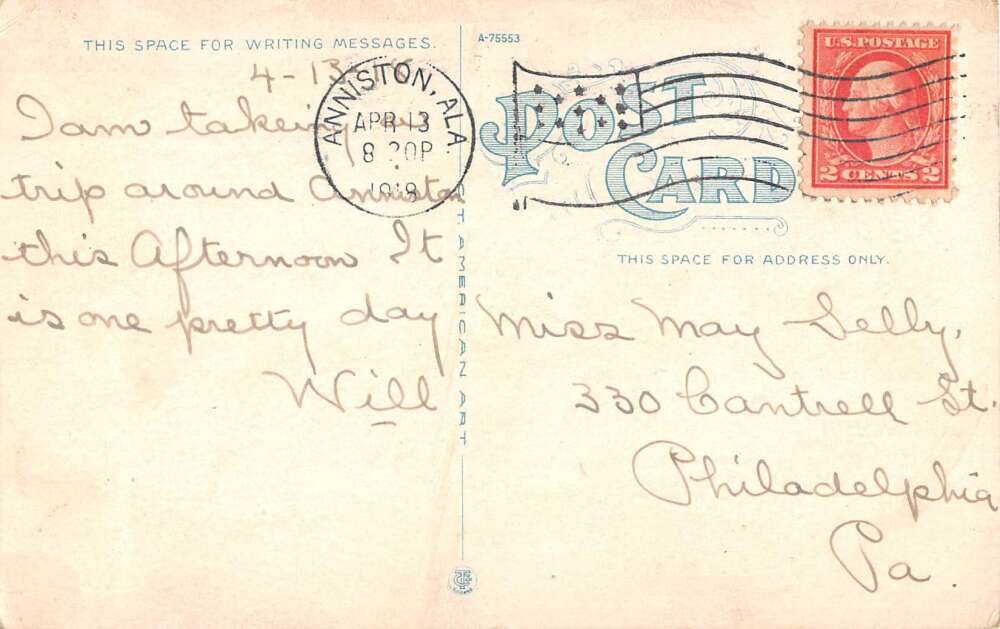 THIS SPACE FOR WRITING MESSAGES.
4-13
I am takeing a
trip around Anniston
this Afternoon It
is one pretty day
Will
A-75553
POST CARD
ANNISTON, ALA.
APR 13
8 30P
1918
U.S. POSTAGE
2 CENTS 2
THIS SPACE FOR ADDRESS ONLY.
Miss May Selly,
330 Cantrell St.
Philadelphia
Pa.
AMERICAN ART